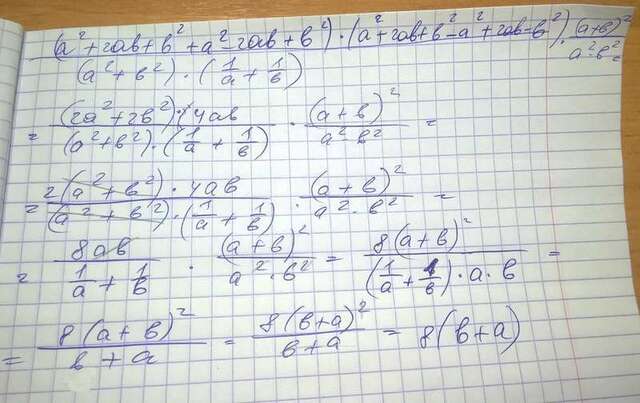 (a²+2ab+b²+a²-2ab+b²)·(a²+2ab+b²-a²+2ab-b²)/((a²+b²)·(1/a+1/b)) · (a+b)²/(a²·b²) =
= (2a²+2b²)·4ab/((a²+b²)·(1/a+1/b)) · (a+b)²/(a²·b²) =
= 2(a²+b²)·4ab/((a²+b²)·(1/a+1/b)) · (a+b)²/(a²·b²) =
= 8ab/(1/a+1/b) · (a+b)²/(a²·b²) = 8(a+b)²/((1/a+1/b)·a·b) =
= 8(a+b)²/(b+a) = 8(b+a)²/(b+a) = 8(b+a)